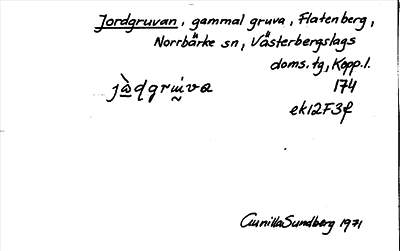 Jordgruvan, gammal gruva, Flatenberg,
Norrbärke sn, Västerbergslags
doms.tg, Kopp.l.
174
ek12F3f
Gunilla Sundberg 1971